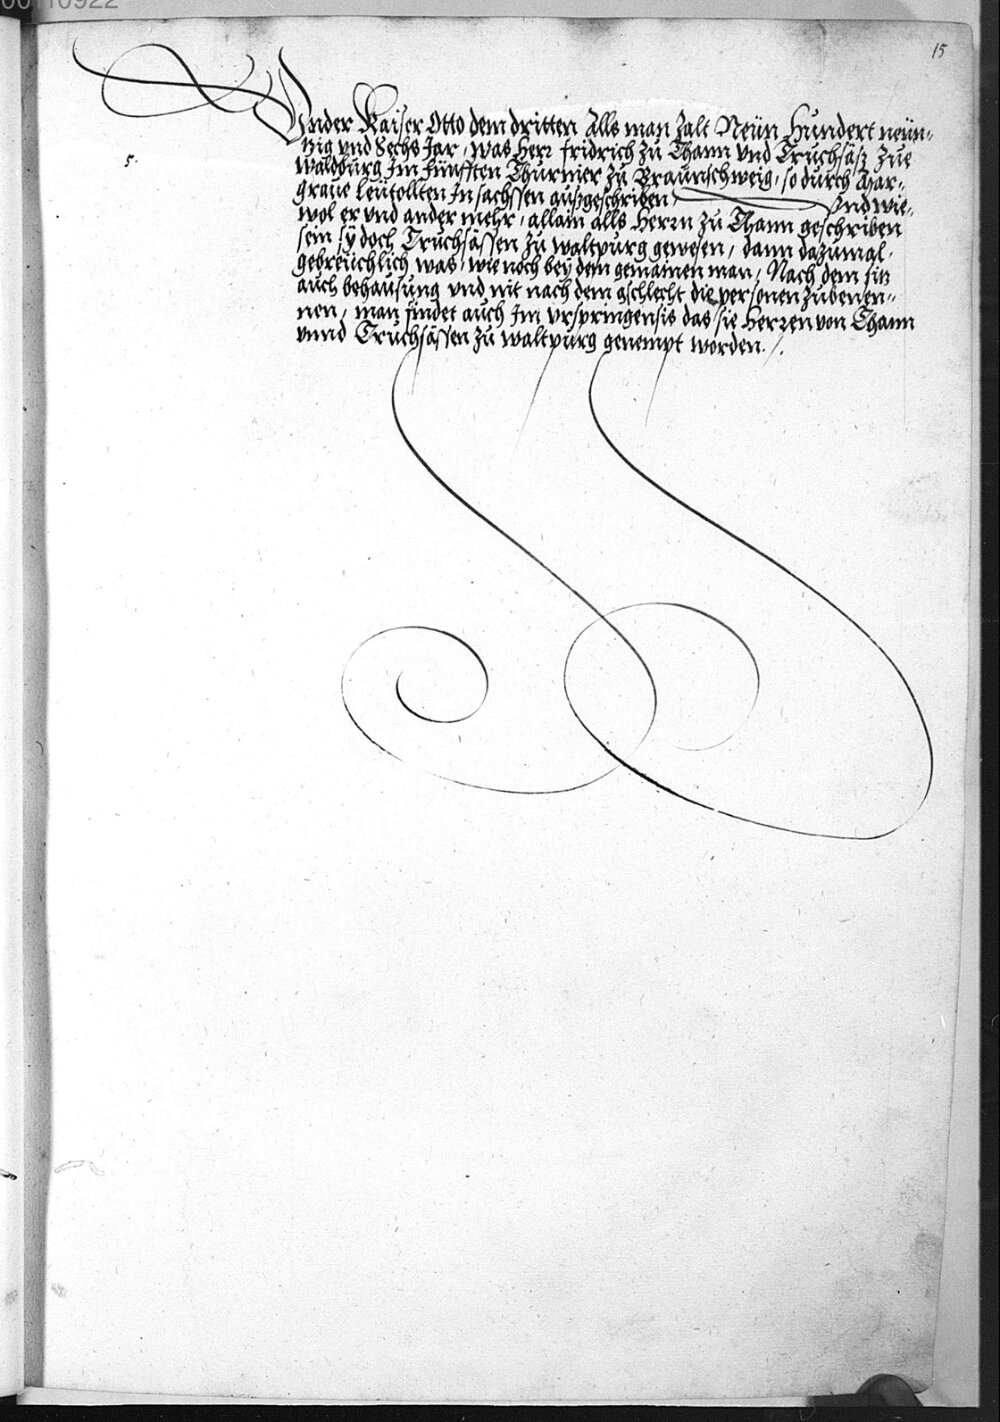 00110922
15
Vnder Kaiser Otto dem dritten Alls man Zalt Neün Hundert neün-
5. Zig vnd Sechs Jar, was Herr Fridrich zu Thann vnd Truchsäsz Zue
Waldburg Im fünfften Thurnier zu Braunschweig, so durch Mar-
graue Leütollten In sachssen auszgeschriben Vnd wie-
wol er vnd ander mehr, allain alls Herrn zu Thann geschriben
sein sÿ doch Truchsässen zu waltpurg gewesen, dann dazumal,
gebreüchlich was, wie noch bey dem gemainen man, Nach dem sitz
auch behausung vnd nit nach dem gschlecht die personen zubenen-
nen, man findet auch Im vrspringensis das sie Herren von Thann
vnnd Truchsässen zu waltpurg genempt worden.